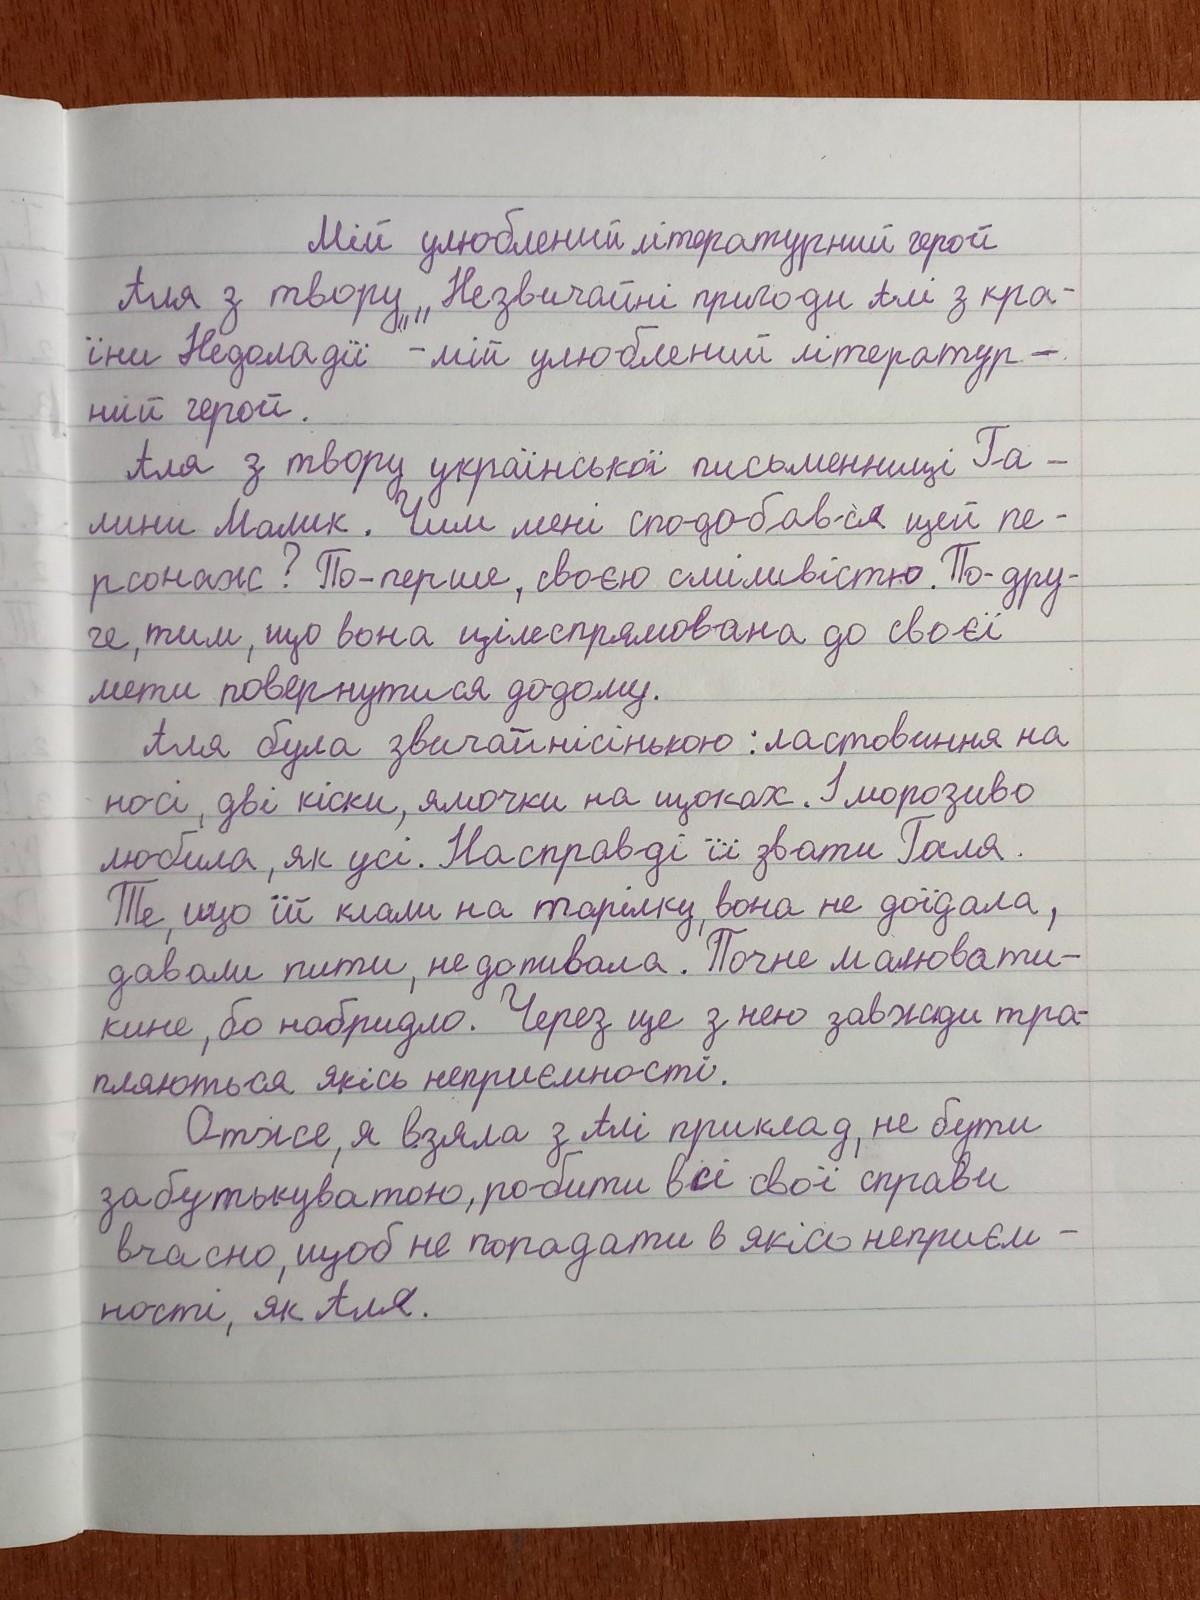 Мій улюблений літературний герой
Аля з твору „Незвичайні пригоди Алі з кра-
їни Недоладії” - мій улюблений літератур-
ний герой.
Аля з твору української письменниці Га-
лини Малик. Чим мені сподобався цей пе-
рсонаж? По-перше, своєю сміливістю. По-дру-
ге, тим, що вона цілеспрямована до своєї
мети повернутися додому.
Аля була звичайнісінькою: ластовиння на
носі, дві кіски, ямочки на щоках. І морозиво
любила, як усі. Насправді її звати Галя.
Те, що їй клали на тарілку, вона не доїдала,
давали пити, не допивала. Почне малювати-
кине, бо набридло. Через це з нею завжди тра-
пляються якісь неприємності.
Отже, я взяла з Алі приклад, не бути
забутькуватою, робити всі свої справи
вчасно, щоб не попадати в якісь неприєм-
ності, як Аля.